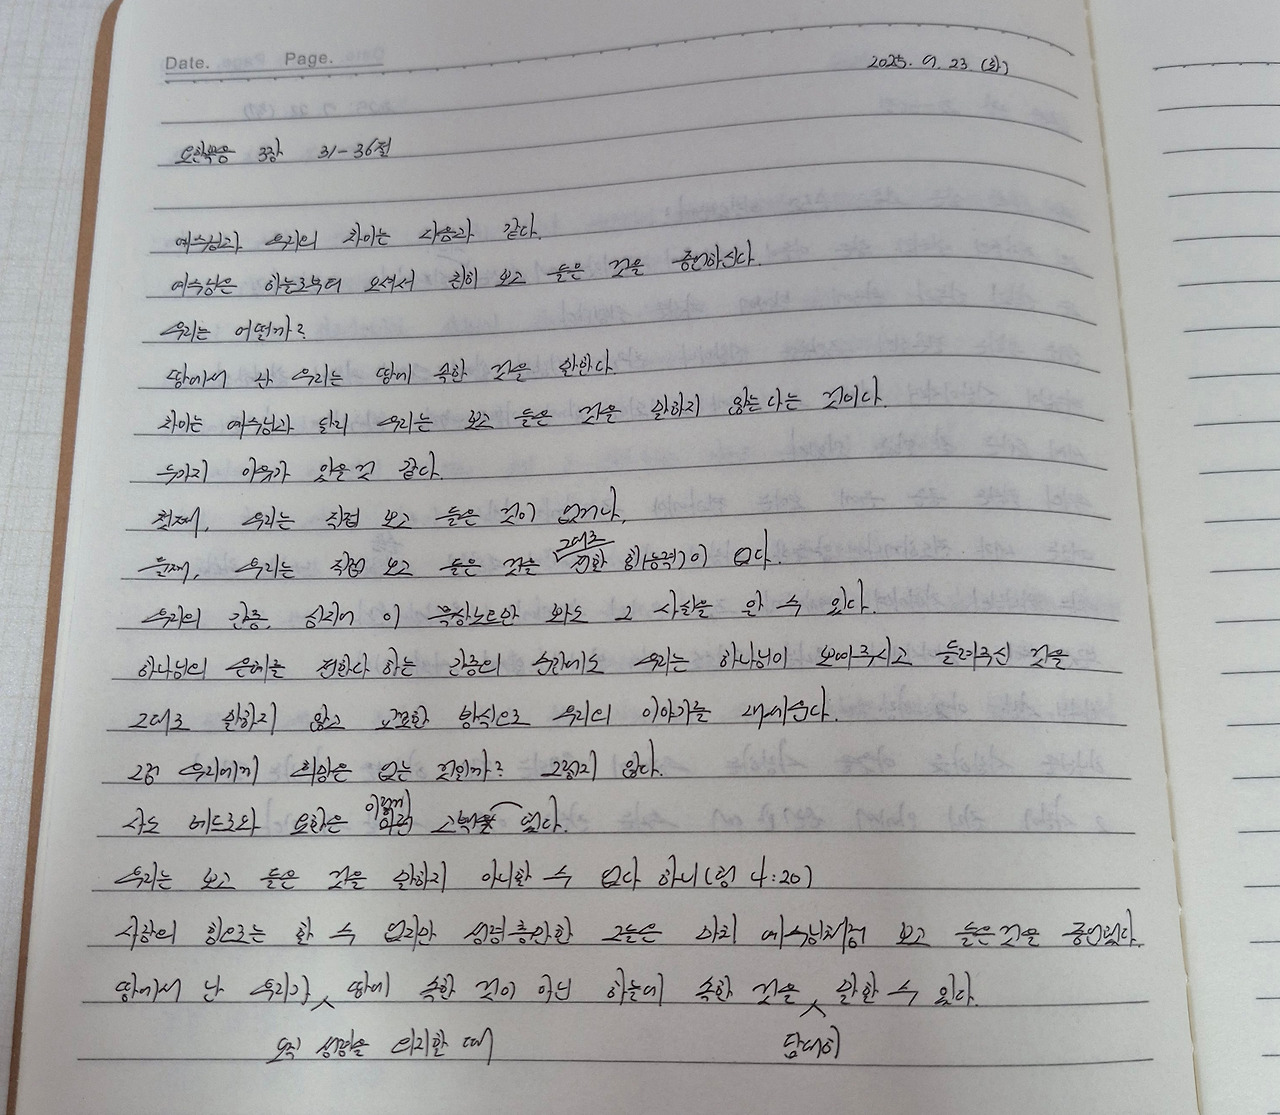 Date. Page.
2025. 9. 23 (화)
요한복음 3장 31-36절
예수님과 우리의 차이는 다음과 같다.
예수님은 하늘로부터 오셔서 친히 보고 들은 것을 증언하신다.
우리는 어떨까?
땅에서 난 우리는 땅에 속한 것을 말한다.
차이는 예수님과 달리 우리는 보고 들은 것을 말하지 않는다는 것이다.
두가지 이유가 있을것 같다.
첫째, 우리는 직접 보고 들은 것이 없거나,
둘째, 우리는 직접 보고 들은 것을 그대로 전할 힘(능력)이 없다.
우리의 간증, 심지어 이 묵상노트만 봐도 그 사실을 알 수 있다.
하나님의 은혜를 전한다 하는 간증의 순간에도 우리는 하나님이 보여주시고 들려주신 것을
그대로 말하지 않고 교묘한 방식으로 우리의 이야기를 내세운다.
그럼 우리에게 희망은 없는 것일까? 그렇지 않다.
사도 베드로와 요한은 이렇게 고백했다.
우리는 보고 들은 것을 말하지 아니할 수 없다 하니(행 4:20)
사람의 힘으로는 할 수 없지만 성령충만한 그들은 마치 예수님처럼 보고 들은것을 증언했다.
땅에서 난 우리가 오직 성령을 의지할 때 땅에 속한 것이 아닌 하늘에 속한 것을 담대히 말할 수 있다.